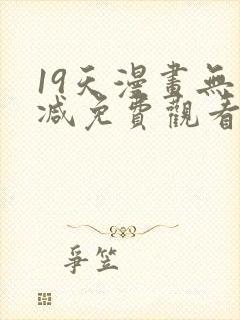 19天漫畫無
减免費觀看
爭笠